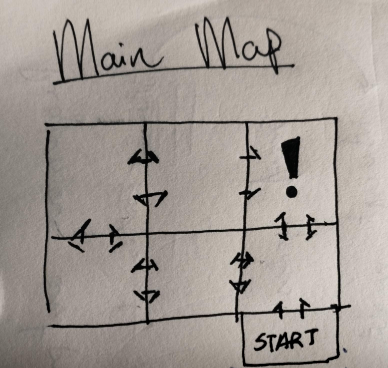 Main Map
!
START